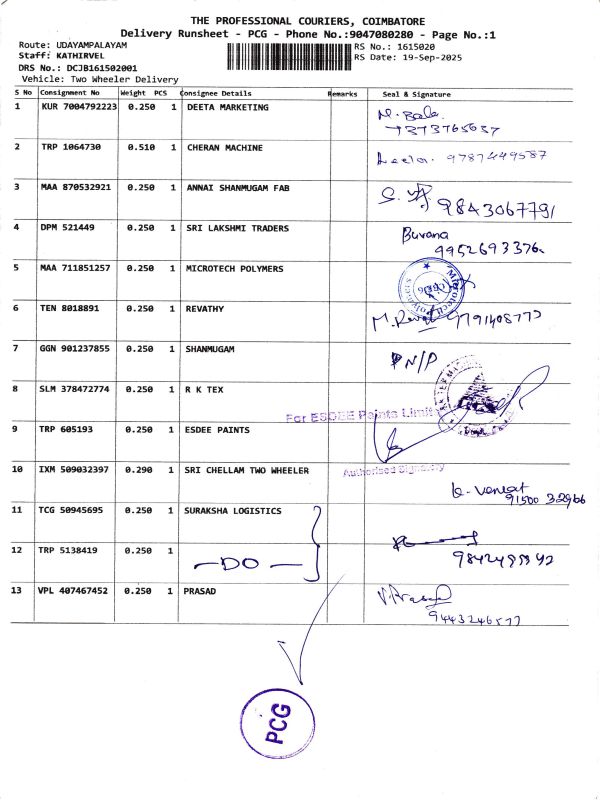 THE PROFESSIONAL COURIERS, COIMBATORE
Delivery Runsheet - PCG - Phone No.:9047080280 - Page No.:1
Route: UDAYAMPALAYAM RS No.: 1615020
Staff: KATHIRVEL RS Date: 19-Sep-2025
DRS No.: DCJB161502001
Vehicle: Two Wheeler Delivery
S No Consignment No Weight PCS Consignee Details Remarks Seal & Signature
1 KUR 7004792223 0.250 1 DEETA MARKETING M. Bala
2 TRP 1064730 0.510 1 CHERAN MACHINE Leela. 9787449587
3 MAA 870532921 0.250 1 ANNAI SHANMUGAM FAB 9843067791
4 DPM 521449 0.250 1 SRI LAKSHMI TRADERS Buvana
9952693376
5 MAA 711851257 0.250 1 MICROTECH POLYMERS Microtech Polymers
6 TEN 8018891 0.250 1 REVATHY
7 GGN 901237855 0.250 1 SHANMUGAM PN/P
8 SLM 378472774 0.250 1 R K TEX
For ESDEE Paints Limit
9 TRP 605193 0.250 1 ESDEE PAINTS
Authorised Signatory
10 IXM 509032397 0.290 1 SRI CHELLAM TWO WHEELER K. Venkat
91500 32966
11 TCG 50945695 0.250 1 SURAKSHA LOGISTICS
12 TRP 5138419 0.250 1 —DO—
13 VPL 407467452 0.250 1 PRASAD V. Prasad
9443246577
PCG